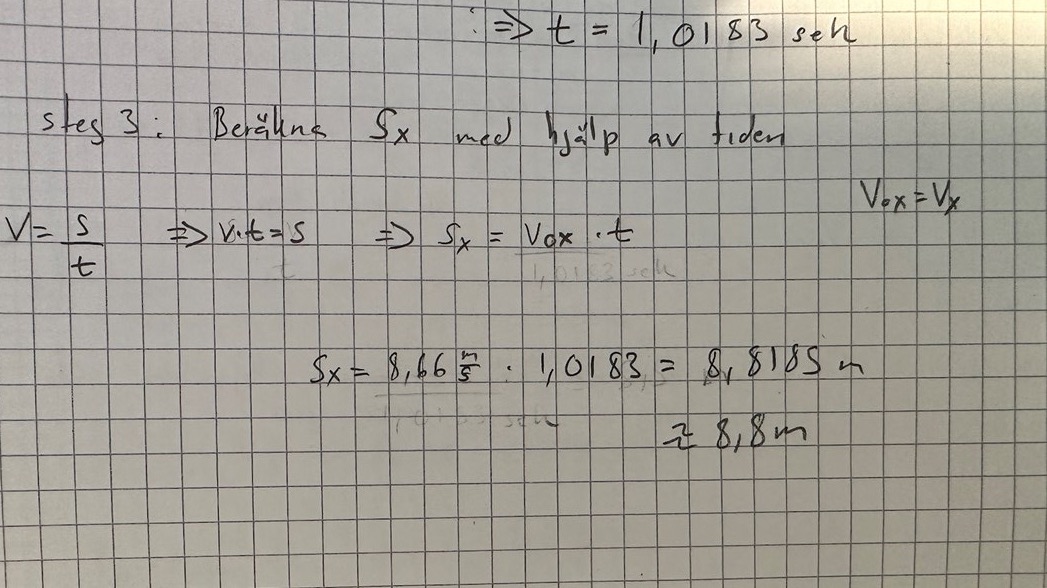 ∴ => t = 1,0183 sek
steg 3: Beräkna Sx med hjälp av tiden
Vox = Vx
V = s/t => v·t = s => Sx = Vox · t
1,0183 sek
Sx = 8,66 m/s · 1,0183 = 8,8185 m
1,0183 sek
≈ 8,8 m